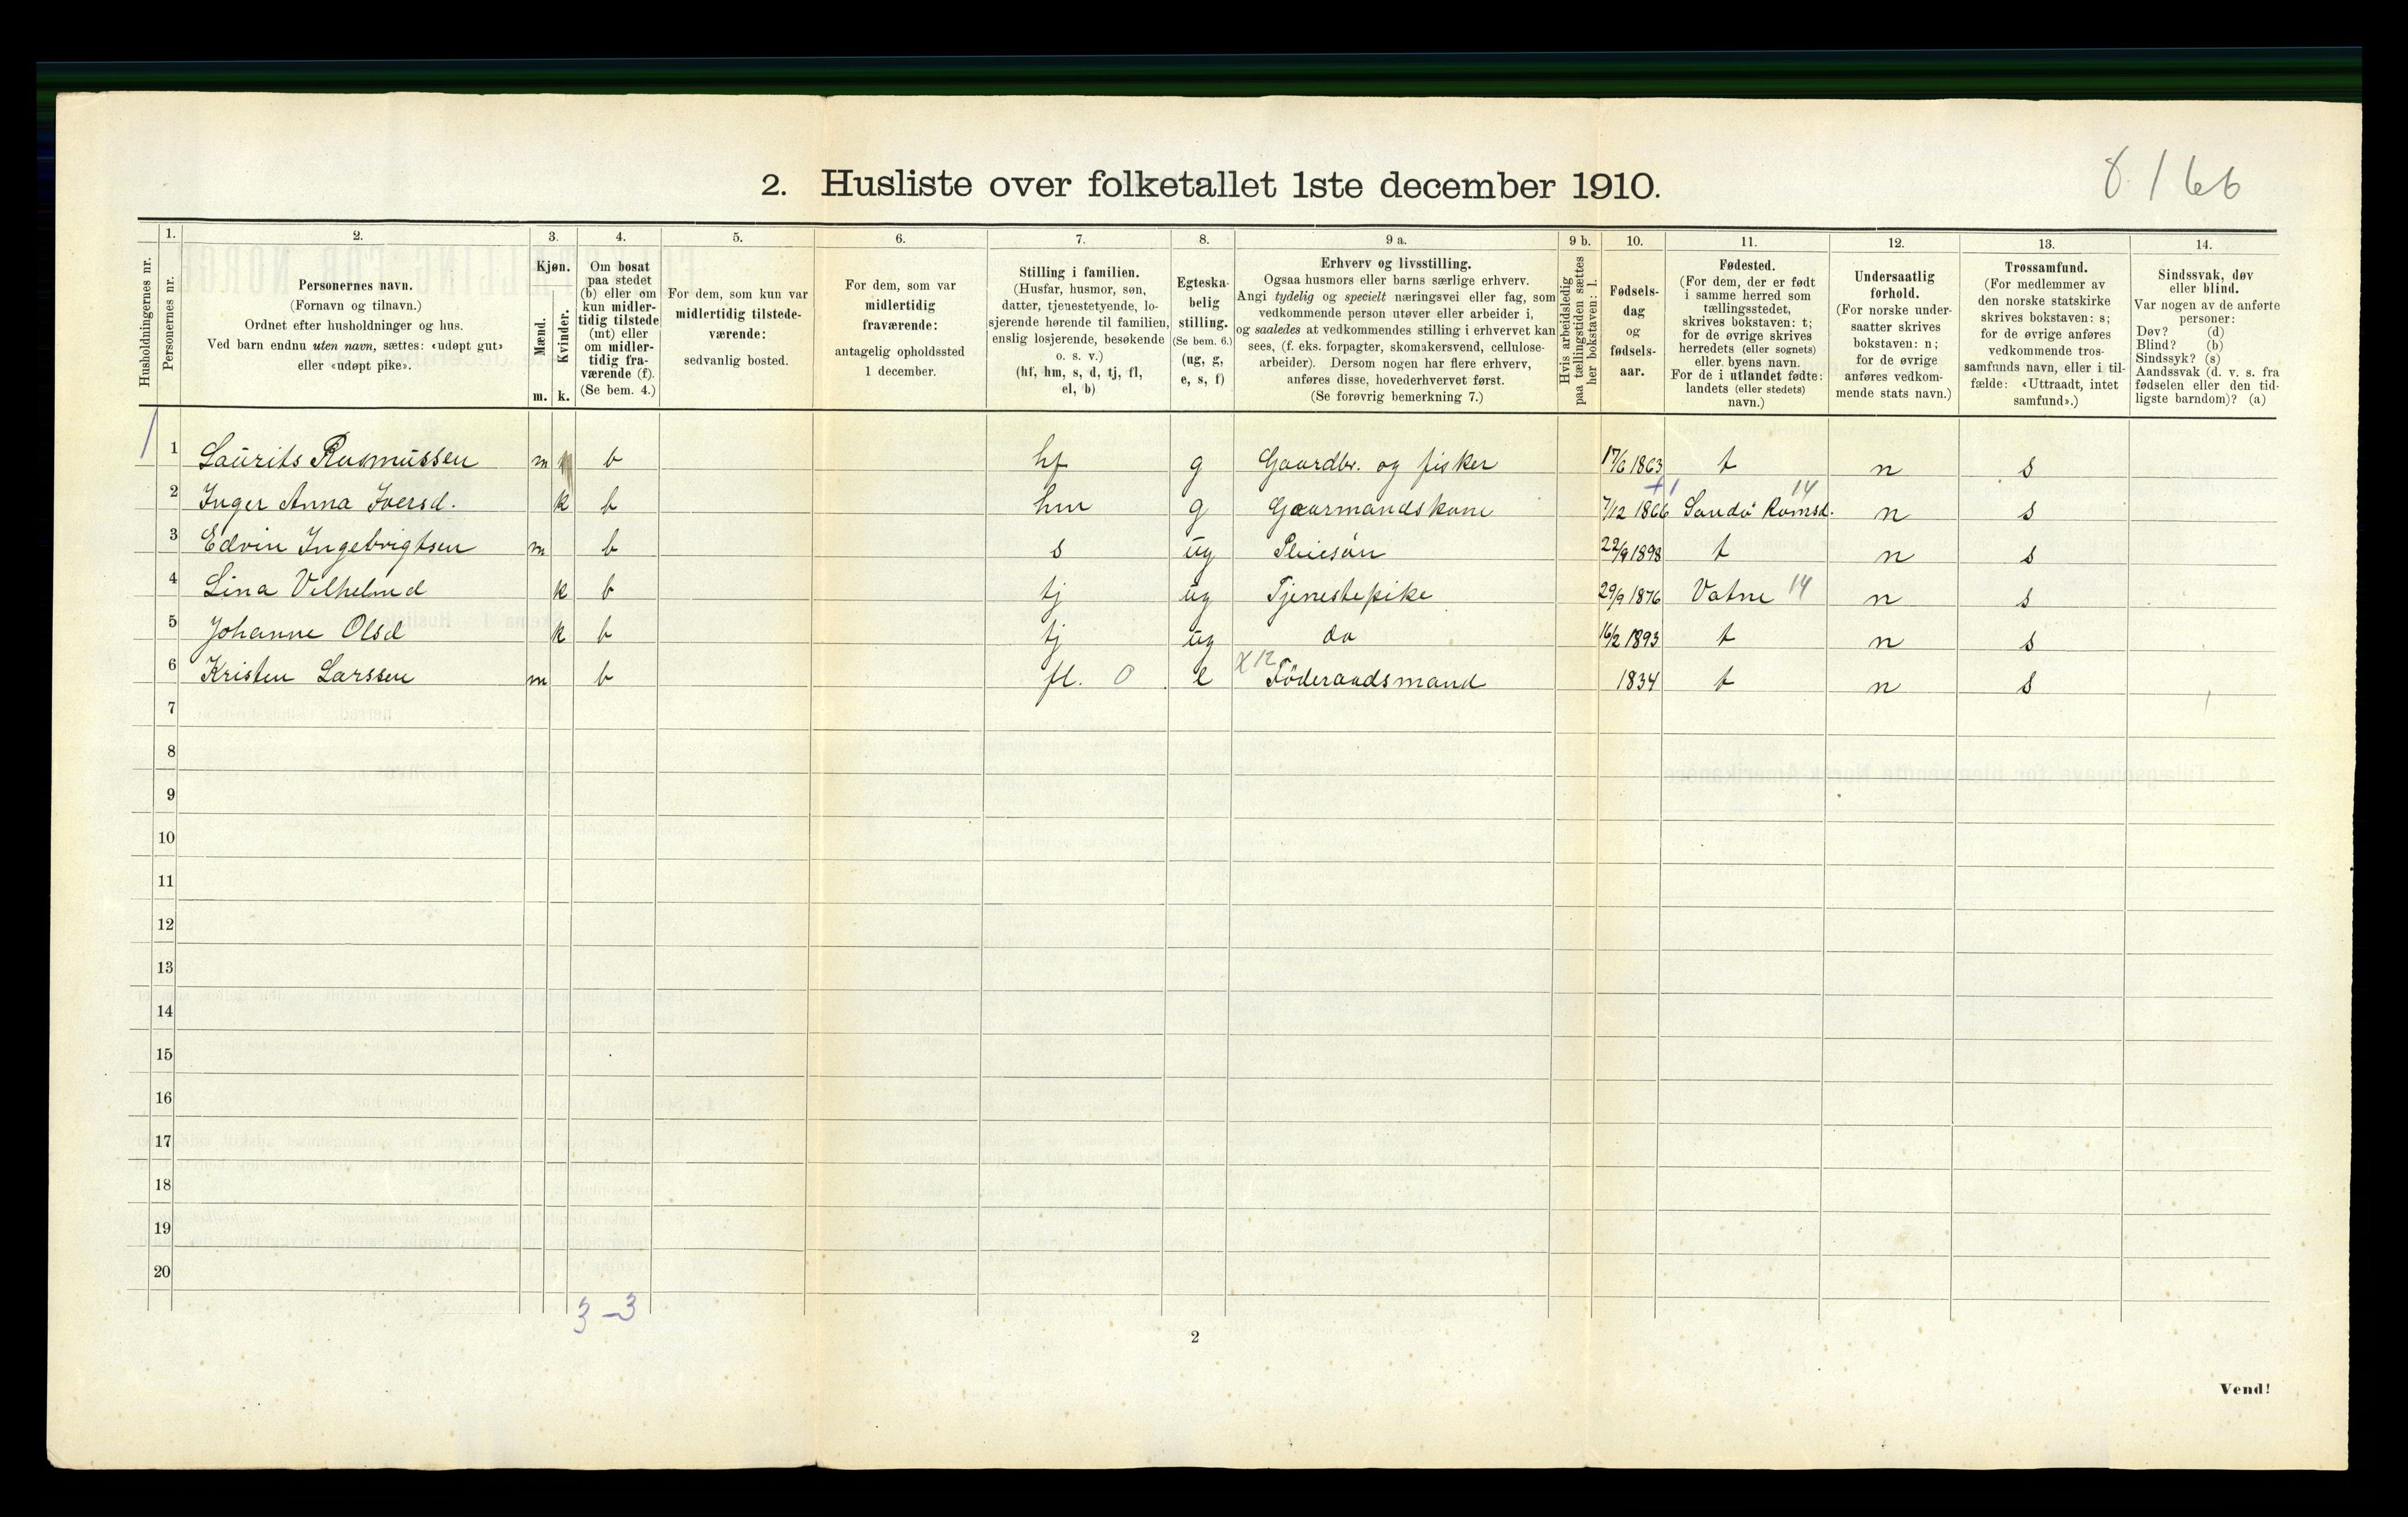 2. Husliste over folketallet 1ste december 1910.
8. / 66
Husholdningernes nr.
1. Personernes nr.
2. Personernes navn.
(Fornavn og tilnavn.)
Ordnet efter husholdninger og hus.
Ved barn endnu uten navn, sættes: «udøpt gut»
eller «udøpt pike».
3. Kjøn.
Mænd. m.
Kvinder. k.
4. Om bosat
paa stedet
(b) eller om
kun midler-
tidig tilstede
(mt) eller
om midler-
tidig fra-
værende (f).
(Se bem. 4.)
5. For dem, som kun var
midlertidig tilstede-
værende:
sedvanlig bosted.
6. For dem, som var
midlertidig
fraværende:
antagelig opholdssted
1 december.
7. Stilling i familien.
(Husfar, husmor, søn,
datter, tjenestetyende, lo-
sjerende hørende til familien,
enslig losjerende, besøkende
o. s. v.)
(hf, hm, s, d, tj, fl,
el, b)
8. Egteska-
belig
stilling.
(Se bem. 6.)
(ug, g,
e, s, f)
9 a. Erhverv og livsstilling.
Ogsaa husmors eller barns særlige erhverv.
Angi tydelig og specielt næringsvei eller fag, som
vedkommende person utøver eller arbeider i,
og saaledes at vedkommendes stilling i erhvervet kan
sees, (f. eks. forpagter, skomakersvend, cellulose-
arbeider). Dersom nogen har flere erhverv,
anføres disse, hovederhvervet først.
(Se forøvrig bemerkning 7.)
9 b. Hvis arbeidsledig
paa tællingstiden sættes
her bokstaven: l.
10. Fødsels-
dag
og
fødsels-
aar.
11. Fødested.
(For dem, der er født
i samme herred som
tællingsstedet,
skrives bokstaven: t;
for de øvrige skrives
herredets (eller sognets)
eller byens navn.
For de i utlandet fødte:
landets (eller stedets)
navn.)
12. Undersaatlig
forhold.
(For norske under-
saatter skrives
bokstaven: n;
for de øvrige
anføres vedkom-
mende stats navn.)
13. Trossamfund.
(For medlemmer av
den norske statskirke
skrives bokstaven: s;
for de øvrige anføres
vedkommende tros-
samfunds navn, eller i til-
fælde: «Uttraadt, intet
samfund».)
14. Sindssvak, døv
eller blind.
Var nogen av de anførte
personer:
Døv? (d)
Blind? (b)
Sindssyk? (s)
Aandssvak (d. v. s. fra
fødselen eller den tid-
ligste barndom)? (a)
1 1 Laurits Rasmussen m b hf g Gaardbr. og fisker 17/6 1863 t n s
2 Inger Anna Iversd. k b hm g Gaarmandskone 7/12 1866 Sandö Romsd. 14 n s
3 Edvin Ingebrigtsen m b s ug 22/9 1898 t n s
4 Lina Vilhelmd k b tj ug Tjenestepike 29/9 1876 Vatne 14 n s
5 Johanne Olsd k b tj ug do 16/2 1893 t n s
6 Kristen Larssen m b fl. 0 e X 12 Föderaadsmand 1834 t n s
7
8
9
10
11
12
13
14
15
16
17
18
19
20
3 - 3
2
Vend!